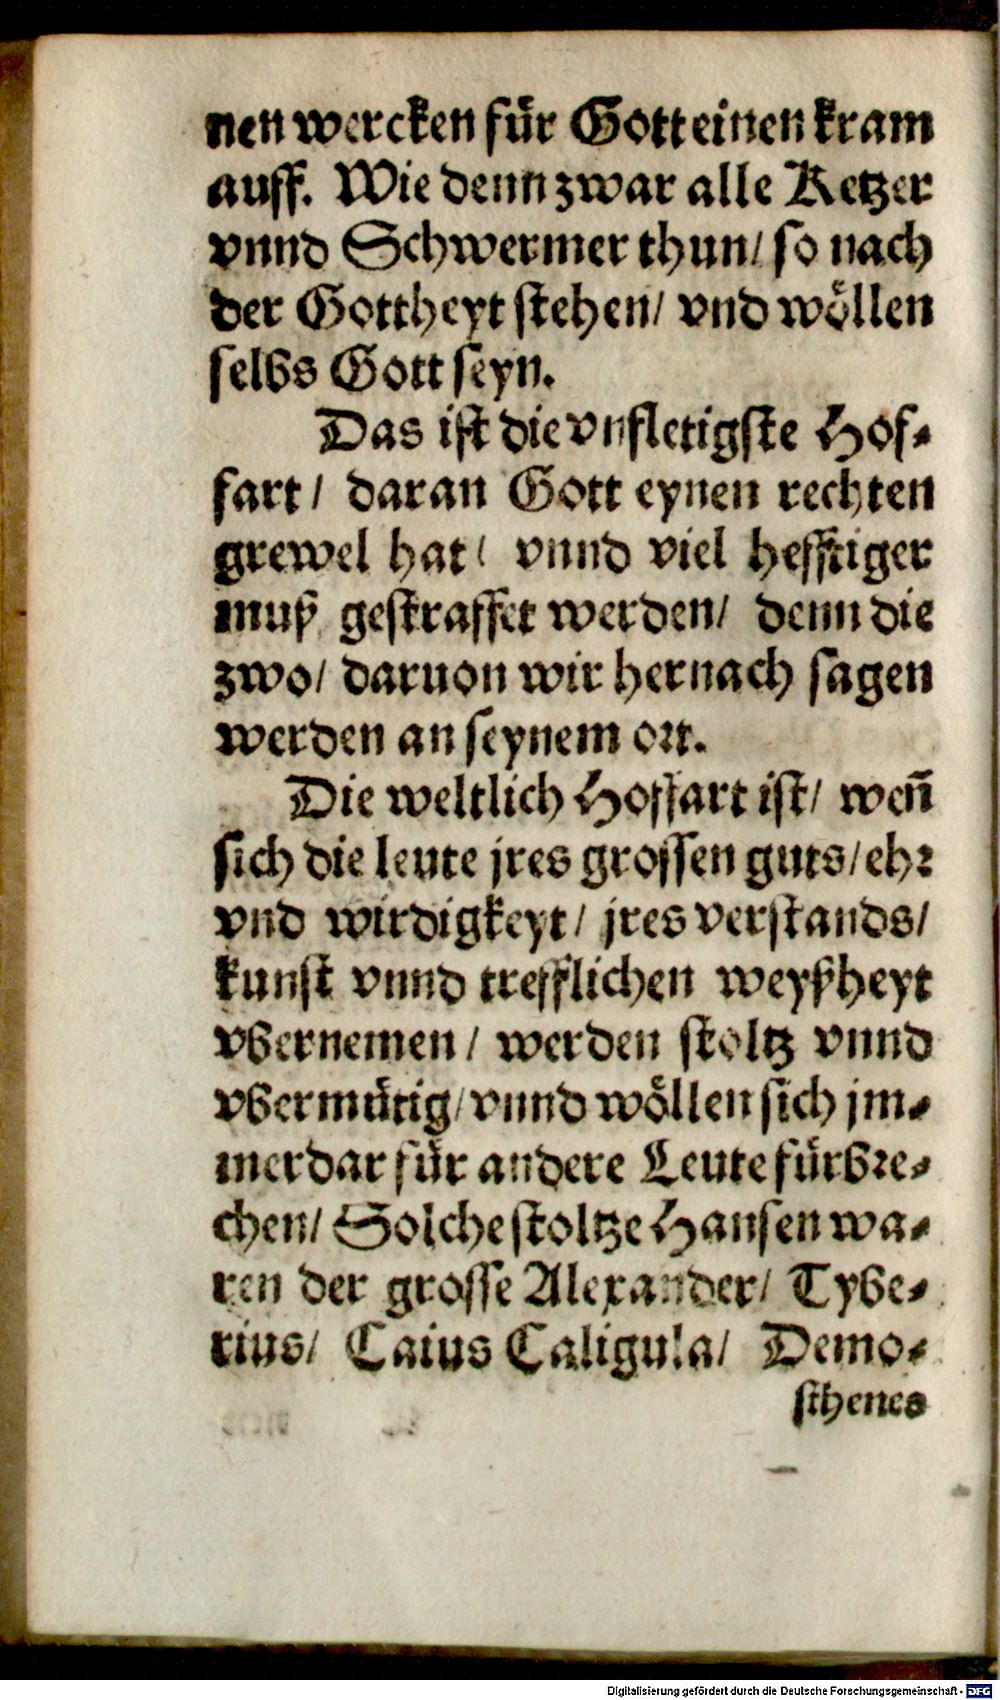 nen wercken für Gott einen kram
auff. Wie denn zwar alle Ketzer
vnnd Schwermer thun/ so nach
der Gottheyt stehen/ vnd wöllen
selbs Gott seyn.
Das ist die vnfletigste Hof-
fart/ daran Gott eynen rechten
grewel hat/ vnnd viel hefftiger
muß gestraffet werden/ denn die
zwo/ daruon wir hernach sagen
werden an seynem ort.
Die weltlich Hoffart ist/ weñ
sich die leute jres grossen guts/ ehr
vnd wirdigkeyt/ jres verstands/
kunst vnnd trefflichen weyßheyt
vbernemen/ werden stoltz vnnd
vbermütig/ vnnd wöllen sich jm-
merdar für andere Leute fürbre-
chen/ Solche stoltze Hansen wa-
ren der grosse Alexander/ Tybe-
rius/ Caius Caligula/ Demo-
sthenes
Digitalisierung gefördert durch die Deutsche Forschungsgemeinschaft - DFG